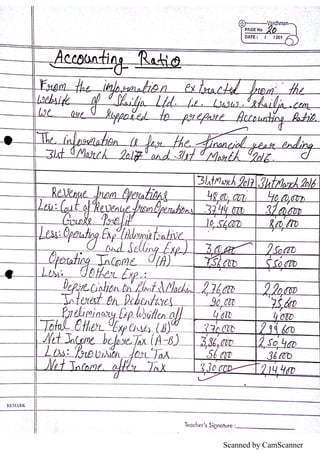 Vardhman
PAGE No. 20
DATE: / /201
Accounting Ratio
From the information extracted from the
website of Shailja Ltd. i.e. www. shailja.com
we are supposed to prepare Accounting Ratio.
The information is for the financial year ending
31st March 2017 and 31st March 2016.
31st March 2017 31st March 2016
Revenue from Operations 48,00,000 40,00,000
Less: Cost of Revenue from Operations 37,44,000 32,00,000
Gross Profit 10,56,000 8,00,000
Less: Operating Exp. (Administrative
and Selling Exp.) 3,00,000 2,50,000
Operating Income (A) 7,56,000 5,50,000
Less: Other Exp.:
Depreciation on Plant & Machin 2,76,000 2,20,000
Interest on Debentures 90,000 75,600
Preliminary Exp. written off 4,000 4,000
Total Other Expenses (B) 3,70,000 2,99,600
Net Income before Tax (A-B) 3,86,000 2,50,400
Less: Provision for Tax 56,000 36,000
Net Income after Tax 3,30,000 2,14,400
REMARK
Teacher's Signature :
Scanned by CamScanner